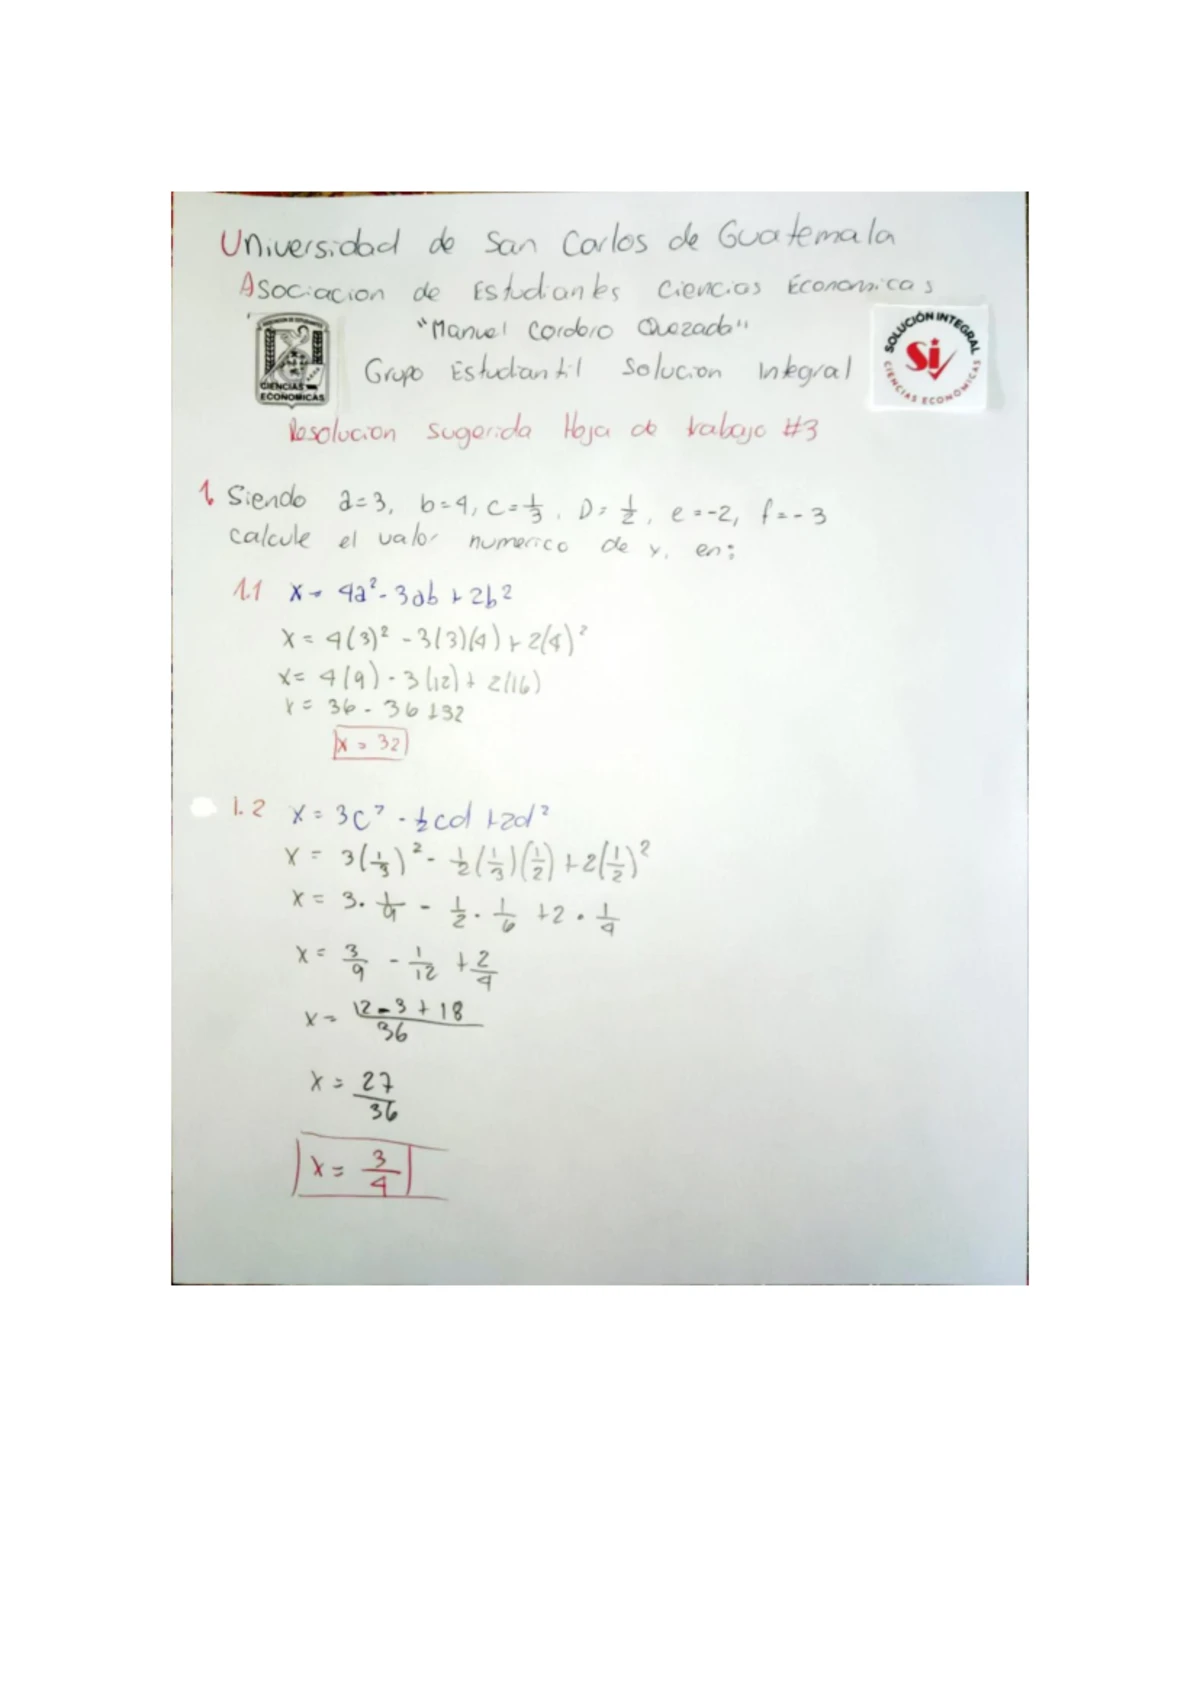 Universidad de San Carlos de Guatemala
Asociacion de Estudiantes Ciencias Económicas
"Manuel Cordero Quezada"
Grupo Estudiantil Solucion Integral
CIENCIAS
ECONOMICAS
SOLUCIÓN INTEGRAL
Si
CIENCIAS ECONOMICAS
Resolucion sugerida Hoja de trabajo #3
1. Siendo a=3, b=4, c=1/3, D=1/2, e=-2, f=-3
calcule el valor numerico de x, en:
1.1 x= 4a²-3ab+2b²
x= 4(3)²-3(3)(4)+2(4)²
x= 4(9)-3(12)+2(16)
x= 36-36+32
x=32
1.2 x=3c²-1/2cd+2d²
x= 3(1/3)²-1/2(1/3)(1/2)+2(1/2)²
x= 3·1/9-1/2·1/6+2·1/4
x= 3/9-1/12+2/4
x= 12-3+18/36
x= 27/36
x= 3/4